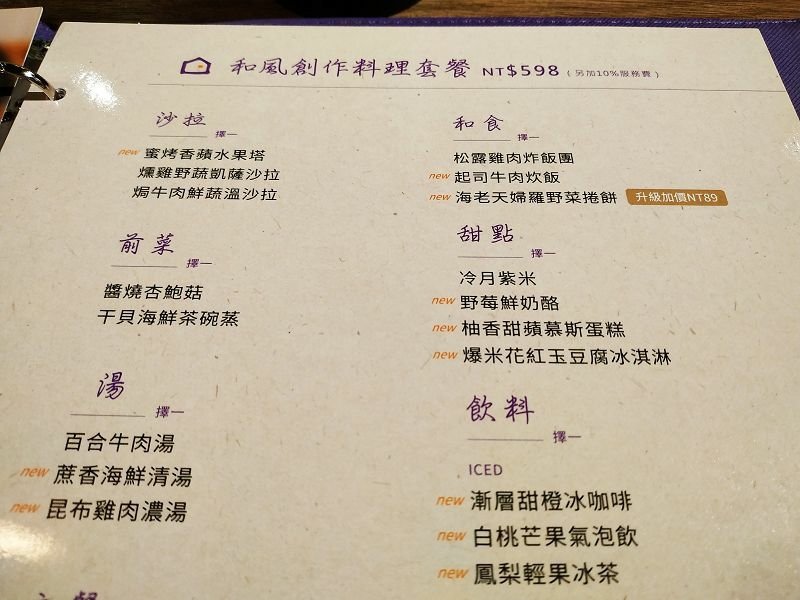 和風創作料理套餐 NT$598 (另加10%服務費)
沙拉
擇一
new 蜜烤香蘋水果塔
燻雞野蔬凱薩沙拉
焗牛肉鮮蔬溫沙拉
前菜
擇一
醬燒杏鮑菇
干貝海鮮茶碗蒸
湯
擇一
百合牛肉湯
new 蔗香海鮮清湯
new 昆布雞肉濃湯
和食
擇一
松露雞肉炸飯團
new 起司牛肉炊飯
new 海老天婦羅野菜捲餅 升級加價NT89
甜點
擇一
冷月紫米
new 野莓鮮奶酪
new 柚香甜蘋慕斯蛋糕
new 爆米花紅玉豆腐冰淇淋
飲料
擇一
ICED
new 漸層甜橙冰咖啡
new 白桃芒果氣泡飲
new 鳳梨輕果冰茶